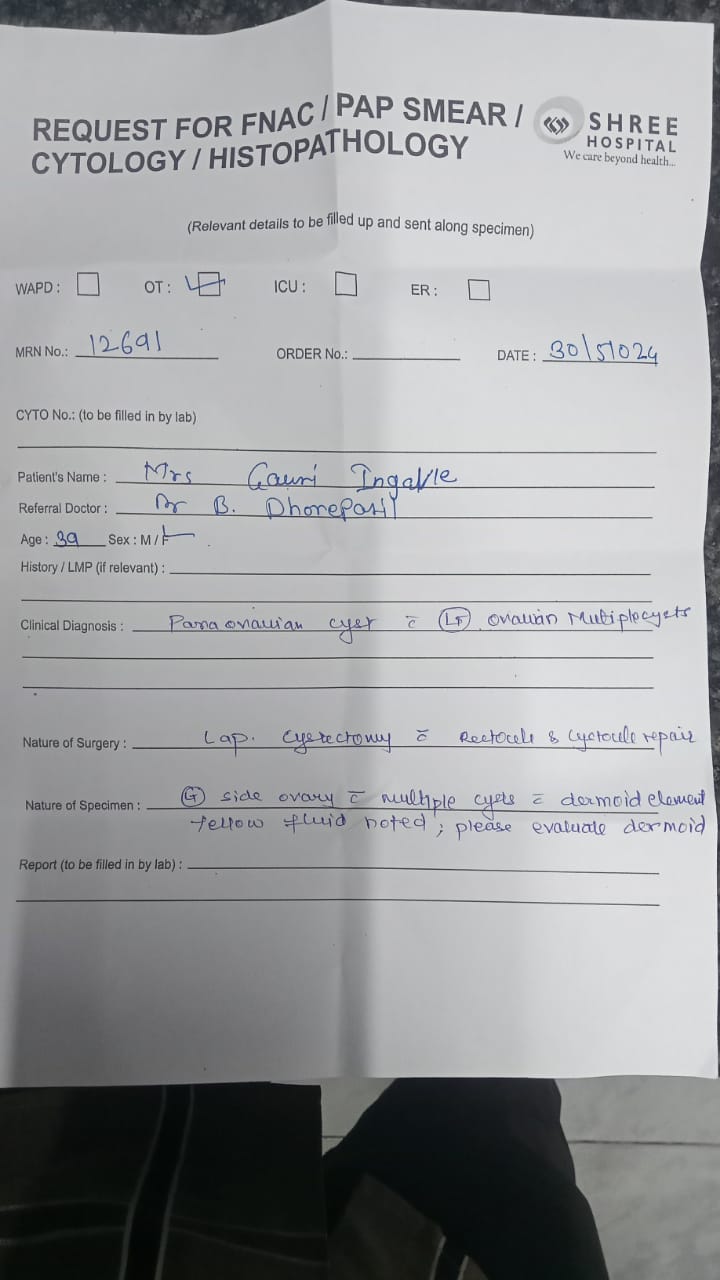 REQUEST FOR FNAC / PAP SMEAR /
CYTOLOGY / HISTOPATHOLOGY
SHREE
HOSPITAL
We care beyond health...
(Relevant details to be filled up and sent along specimen)
WAPD : OT : ICU : ER :
MRN No.: 12691 ORDER No.: DATE : 30/5/024
CYTO No.: (to be filled in by lab)
Patient's Name : Mrs Gauri Ingavle
Referral Doctor : Dr B. Dhorepatil
Age : 39 Sex : M / F
History / LMP (if relevant) :
Clinical Diagnosis : Paraovarian cyst c̄ Lt ovarian Multiplecysts
Nature of Surgery : Lap. Cystectomy c̄ Rectocele & Cystocele repair
Nature of Specimen : side ovary c̄ multiple cysts c̄ dermoid element
Yellow fluid noted ; please evaluate dermoid
Report (to be filled in by lab) :